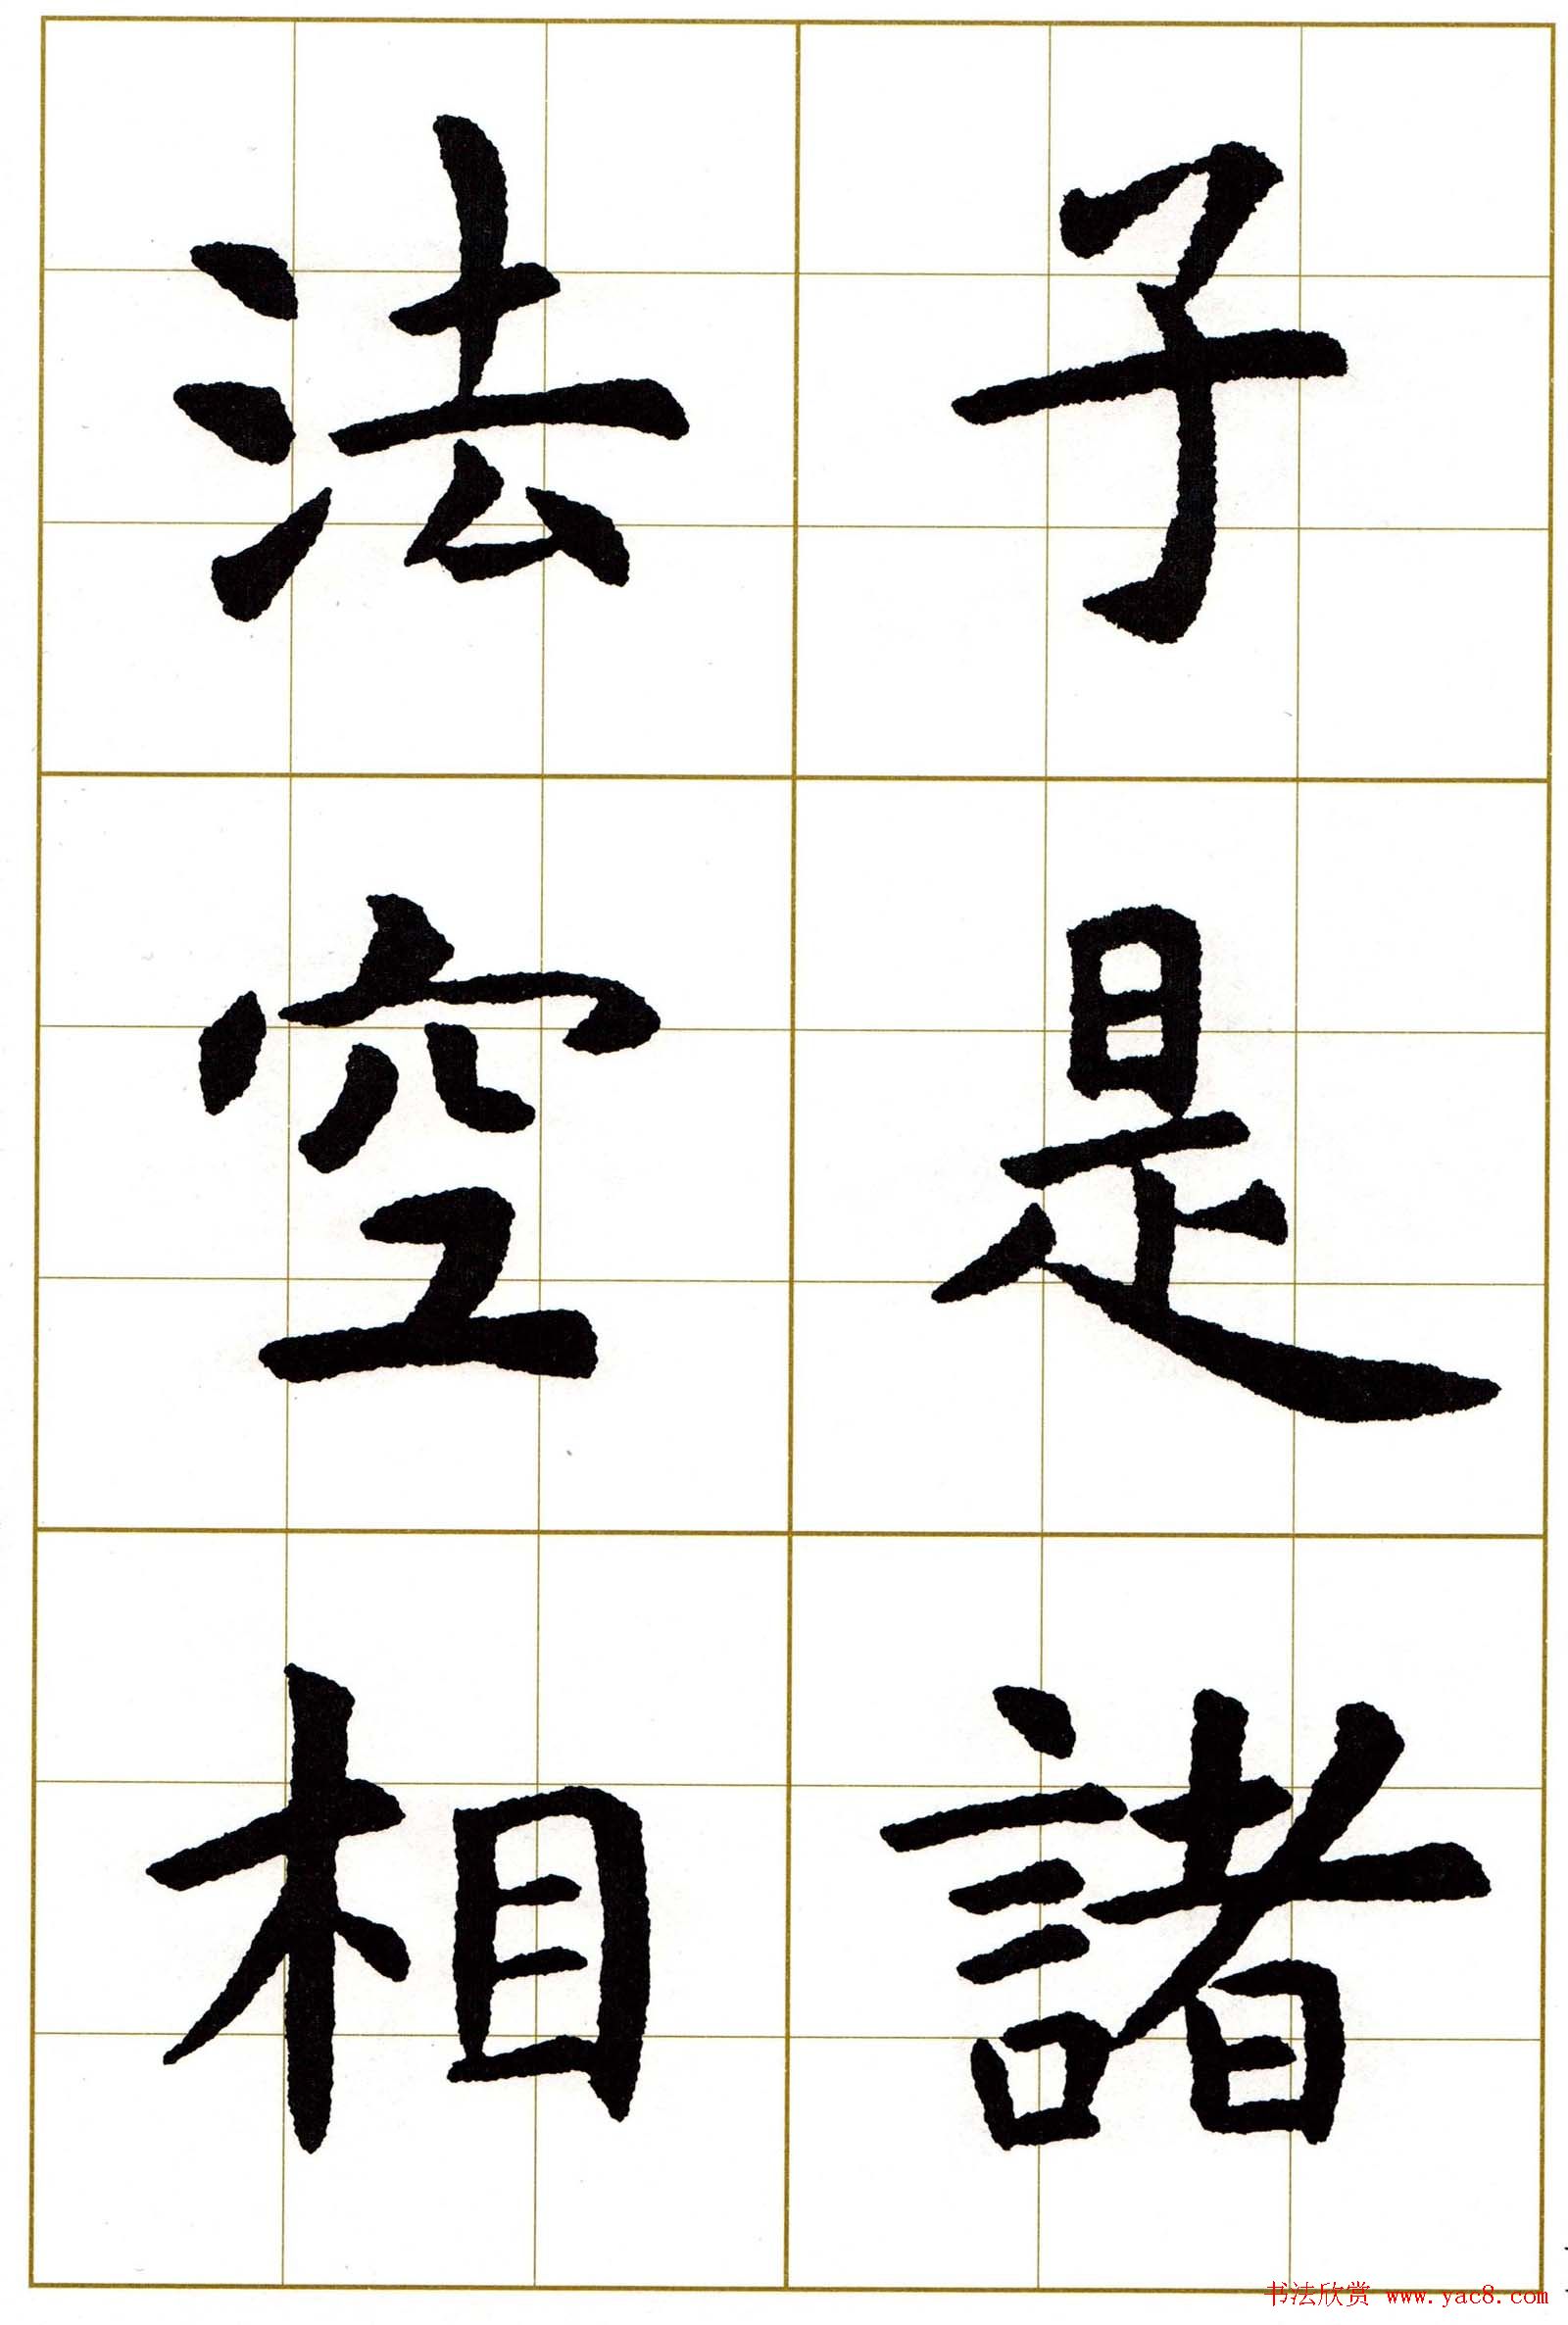 子是諸
法空相
书法欣赏 www.yac8.com